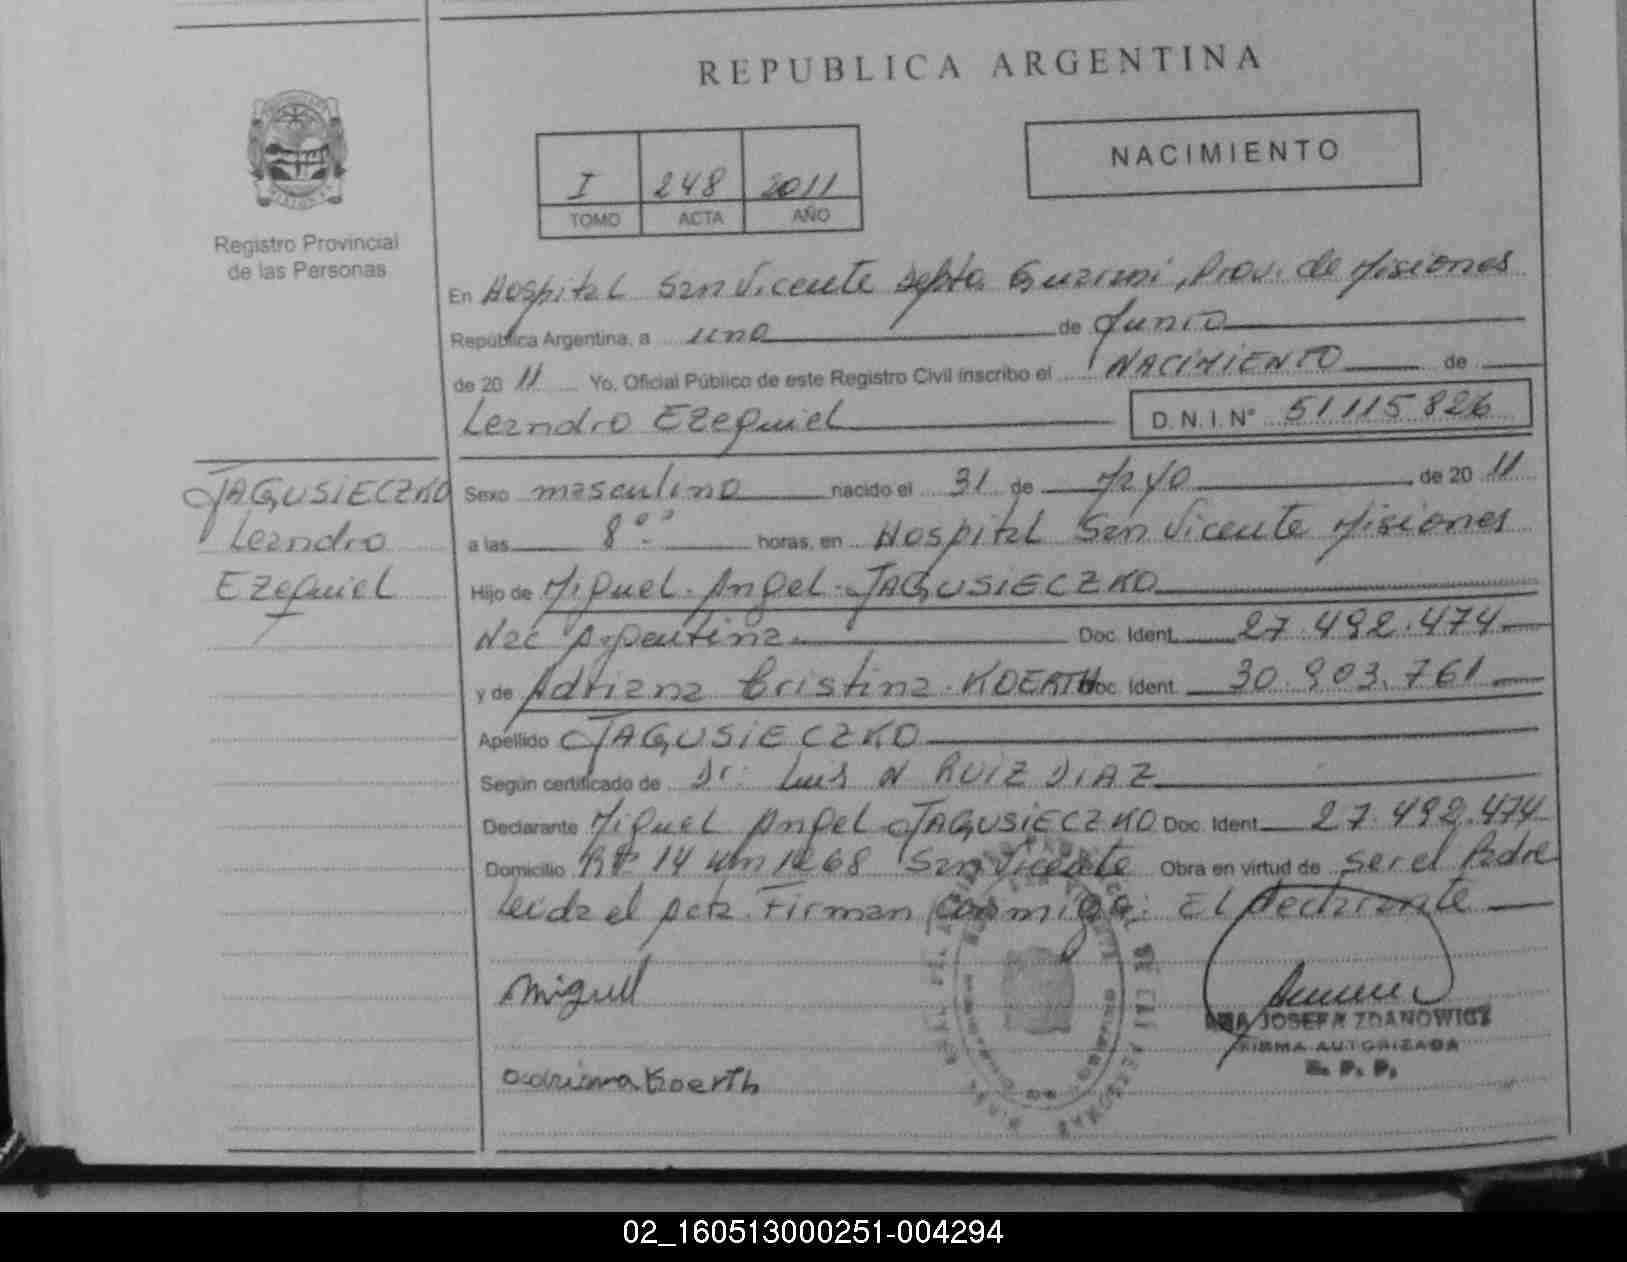 REPUBLICA ARGENTINA
NACIMIENTO
I 248 2011
TOMO ACTA AÑO
Registro Provincial
de las Personas
En Hospital San Vicente Depto. Guarani, Prov. de Misiones
República Argentina, a uno de Junio
de 20 11 Yo, Oficial Público de este Registro Civil inscribo el NACIMIENTO de
Leandro Ezequiel D.N.I. N° 51.115.826
JAGUSIECZKO
Leandro
Ezequiel
Sexo masculino nacido el 31 de Mayo de 20 11
a las 8°° horas, en Hospital San Vicente Misiones
Hijo de Miguel Angel JAGUSIECZKO
Nac Argentina Doc. Ident. 27.492.474
y de Adriana Cristina KOERTH Doc. Ident. 30.903.761
Apellido JAGUSIECZKO
Según certificado de Dr. Luis N RUIZ DIAZ
Declarante Miguel Angel JAGUSIECZKO Doc. Ident. 27.492.474
Domicilio 14 1268 San Vicente Obra en virtud de ser el Padre
Leida el Acta Firman conmigo: El Declarante
Miguel
JOSEFA ZDANOWICZ
FIRMA AUTORIZADA
R. P. P.
adriana Koerth
02_160513000251-004294